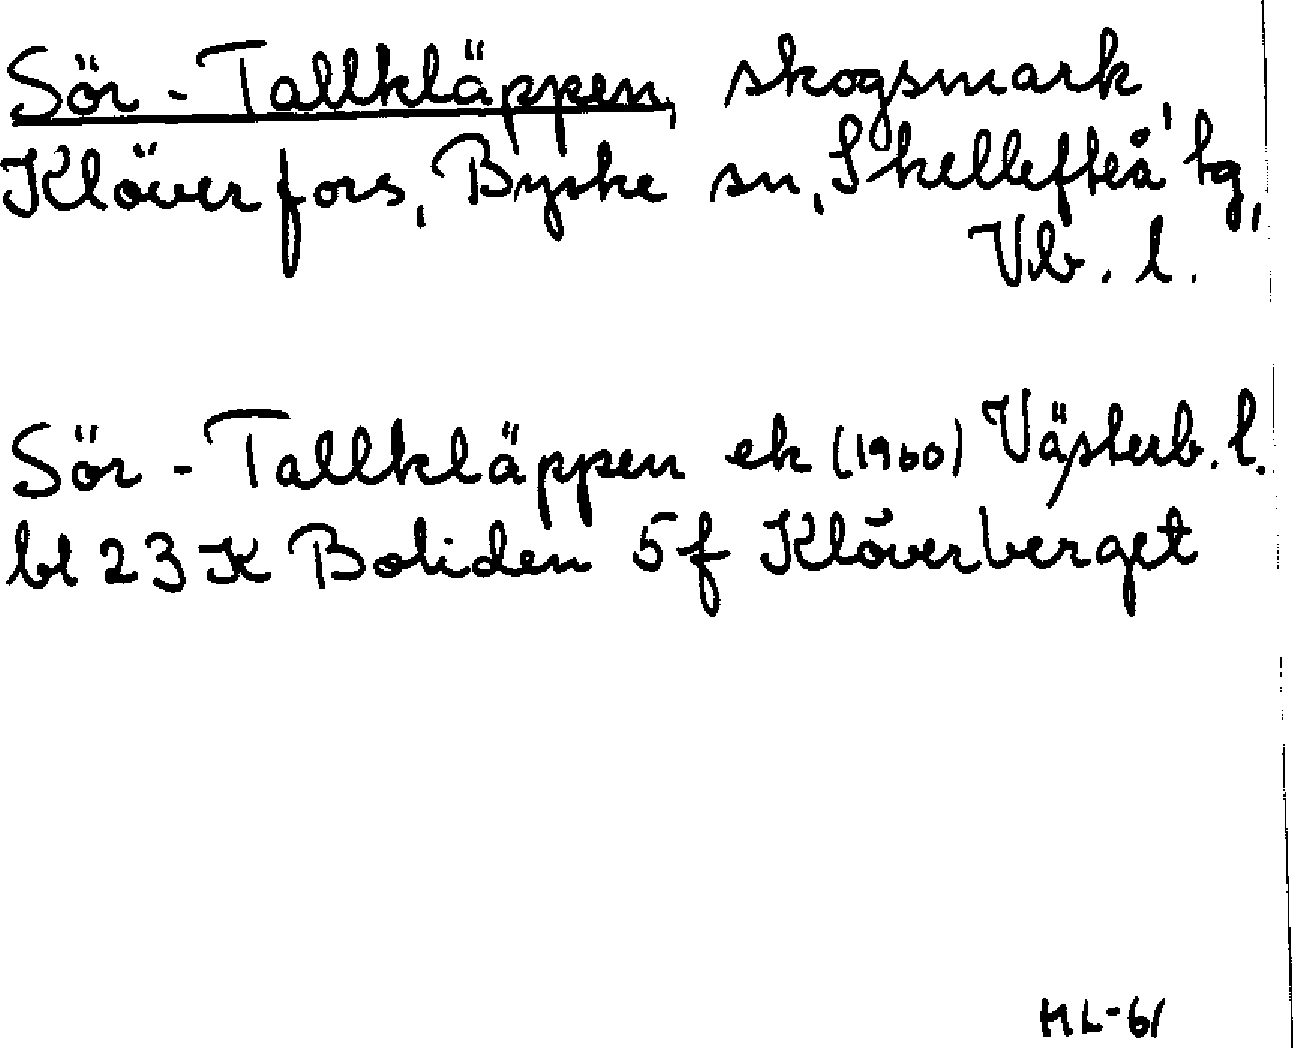 Sör-Tallkläppen, skogsmark,
Klöverfors, Byske sn, Skellefteå tg,
Vb. l.
Sör-Tallkläppen ek (1960) Västerb. l.
bl 23 K Boliden 5f Klöverberget
HL-61